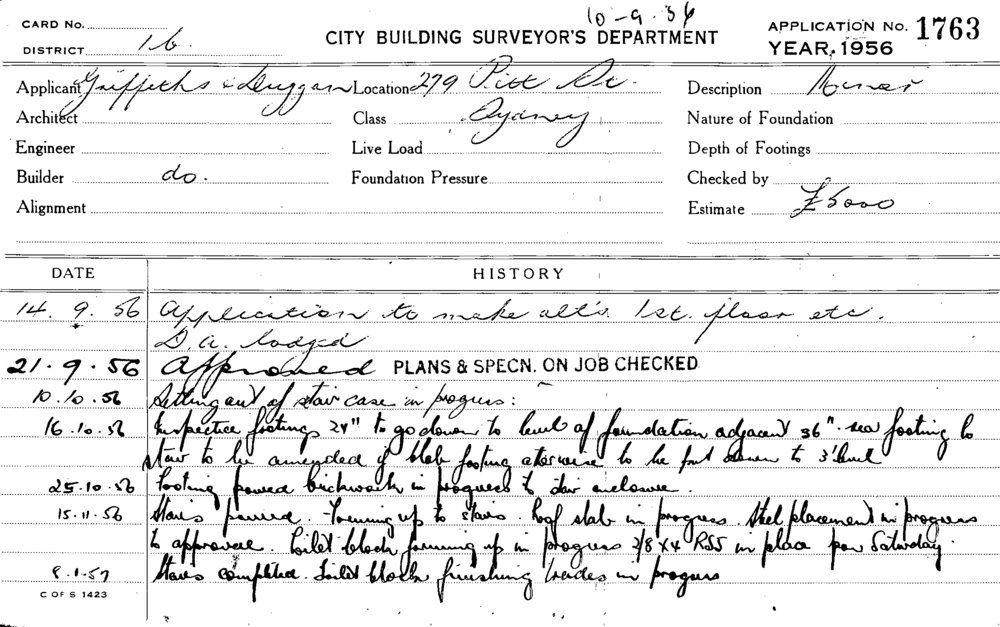 10-9-56
CARD No.
DISTRICT 16.
CITY BUILDING SURVEYOR'S DEPARTMENT
APPLICATION No. 1763
YEAR, 1956
Applicant Griffiths & Duggan Location 279 Pitt St. Description Minor
Architect Class Sydney Nature of Foundation
Engineer Live Load Depth of Footings
Builder do. Foundation Pressure Checked by
Alignment Estimate £5000
DATE HISTORY
14. 9. 56 Application to make alt's 1st. floor etc.
D.A. lodged
21.9.56 Approved PLANS & SPECN. ON JOB CHECKED
10.10.56 Setting out of stair case in progress:
16.10.56 footings 24" to go down to level of foundation adjacent 36" footing to
stair to be amended footing to be put down to 3' level
25.10.56 Footing poured brickwork in progress to stair enclosure.
15.11.56 Stairs poured. Forming up to stairs. Roof slab in progress. Steel placement in progress
to approval. Toilet block forming up in progress 8x4 RSJ in place Saturday.
8.1.57 Stairs completed. Toilet block finishing trades in progress
C OF S 1423